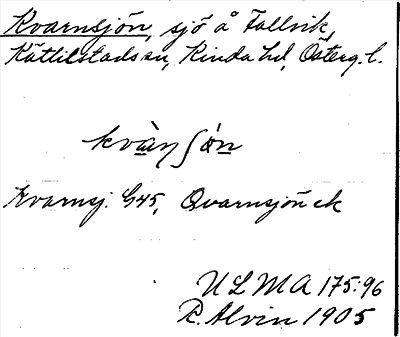 Kvarnsjön, sjö å Fallvik,
Kättilstads sn, Kinda hd, Österg. l.
kvànʃön
Kvarnsj. G45, Qvarnsjön ek
ULMA 175:96
R. Alvin 1905